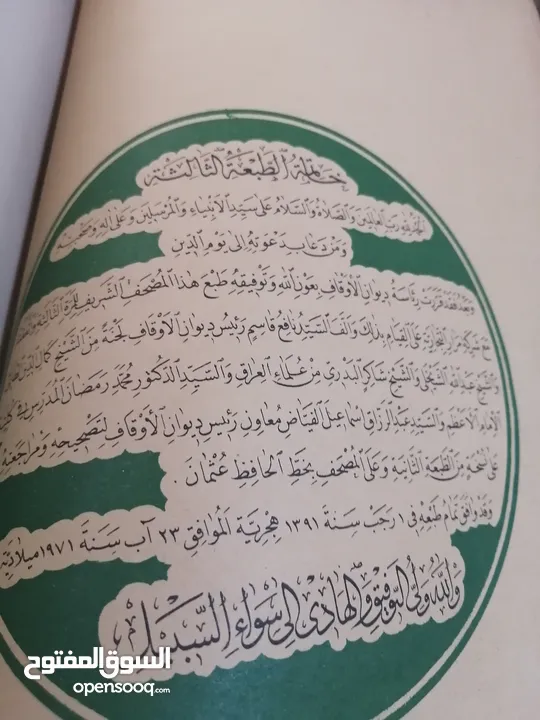 خاتمة الطبعة الثالثة
الحمد لله رب العالمين والصلاة والسلام على سيد الأنبياء والمرسلين وعلى آله وصحبه
ومن دعا بدعوته إلى يوم الدين
وبعد فقد قررت رئاسة ديوان الأوقاف بعون الله وتوفيقه طبع هذا المصحف الشريف للمرة الثالثة
مع شركة التجارية على القيام بذلك وألف السيد نافع قاسم رئيس ديوان الأوقاف لجنة من الشيخ كمال الدين
والشيخ عبد الله الشيخلي والشيخ شاكر البدري من علماء العراق والسيد الدكتور محمد رمضان المدرس في
الإمام الأعظم والسيد عبد الرزاق اسماعيل الفياض معاون رئيس ديوان الأوقاف لتصحيحه ومراجعته
على نسخة من الطبعة الثانية وعلى المصحف بخط الحافظ عثمان .
وقد وافق تمام طبعه في ١ رجب سنة ١٣٩١ هجرية الموافق ٢٣ آب سنة ١٩٧١ ميلادية
والله ولي التوفيق والهادي إلى سواء السبيل
السوق المفتوح
opensooq.com